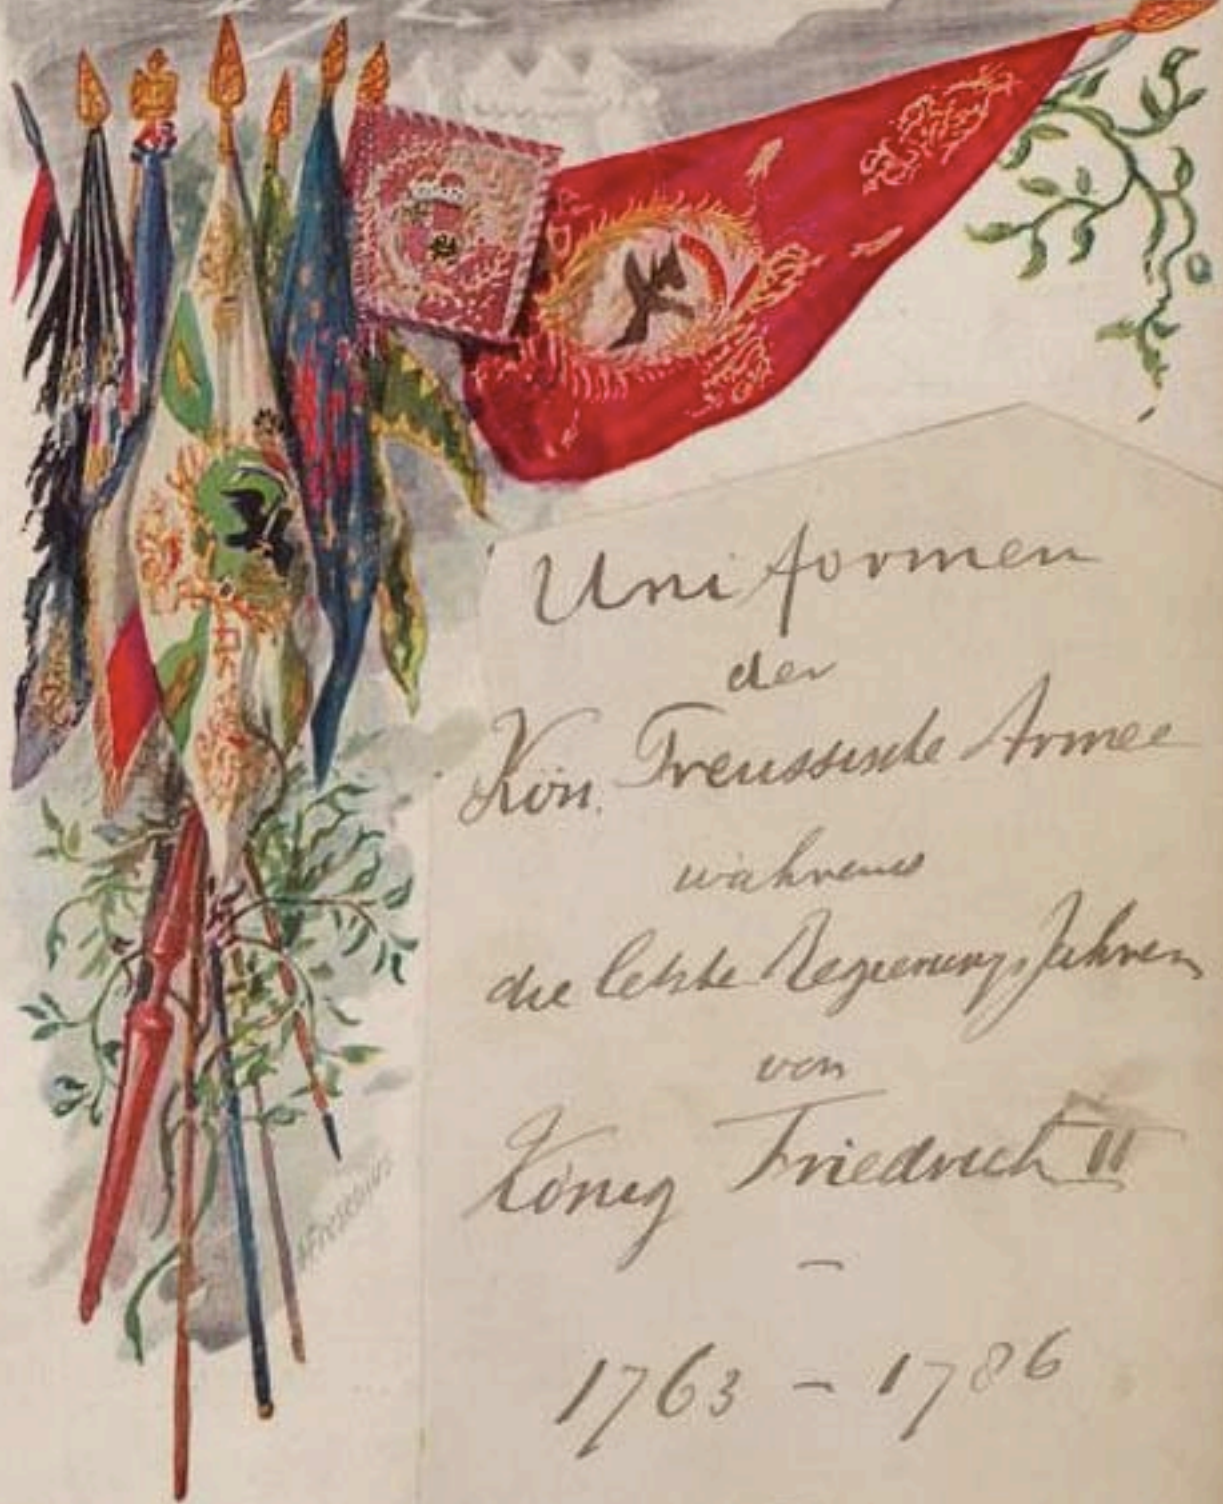 Uniformen
der
Kön. Preussische Armee
während
die letzte Regierungs Jahren
von
König Friedrich II
–
1763 – 1786